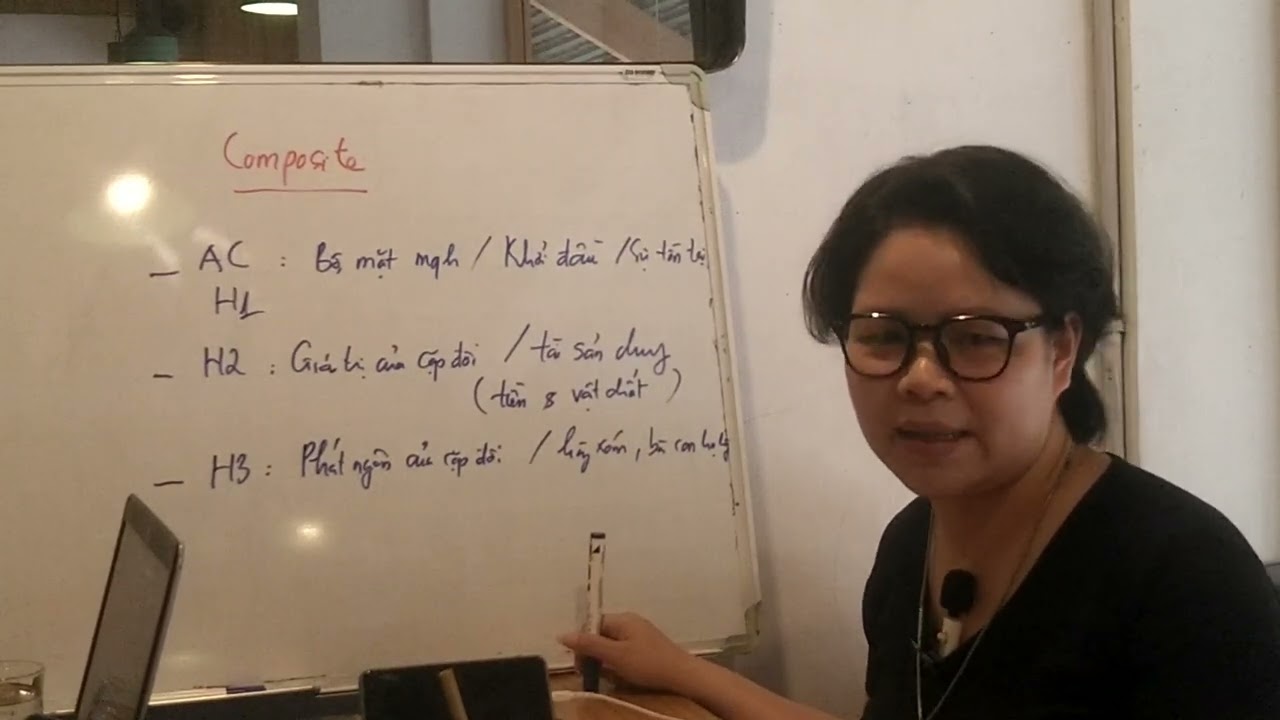 Composite
– AC : Bộ mặt mqh / Khởi đầu / Sự tồn tại
H1
– H2 : Giá trị của cặp đôi / tài sản duy
(tiền & vật chất)
– H3 : Phát ngôn của cặp đôi / hàng xóm, bà con họ